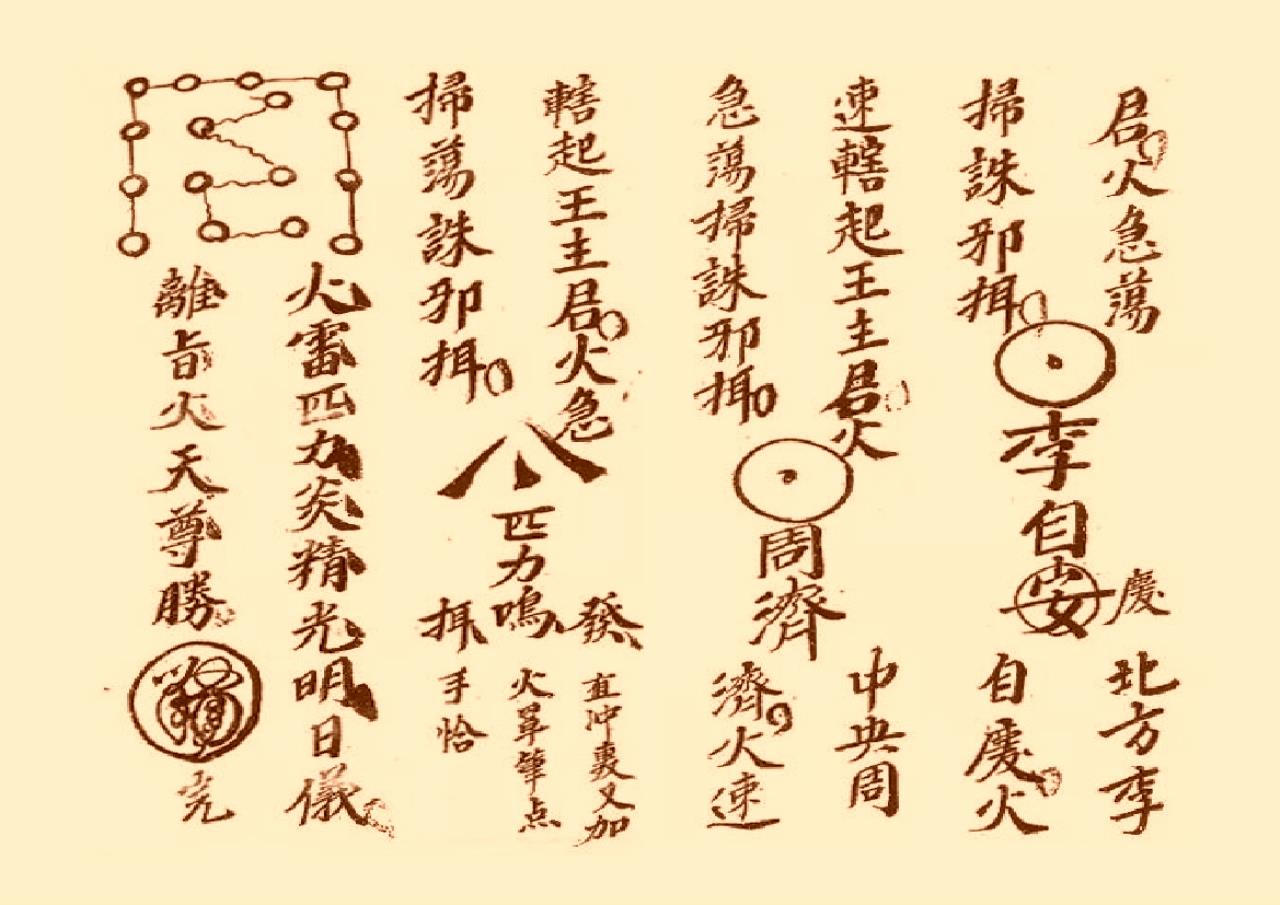 君火急蕩
掃誅邪挕
李自
慶
北方李
自慶火
速轄起王主君火
急蕩掃誅邪挕
周濟
中央周
濟火速
轄起王主君火急
掃蕩誅邪挕
發
匹力鳴
挕
直冲裏又加
火單筆点
手恰
火雷匹力炎精光明日儀
離旨火天尊勝